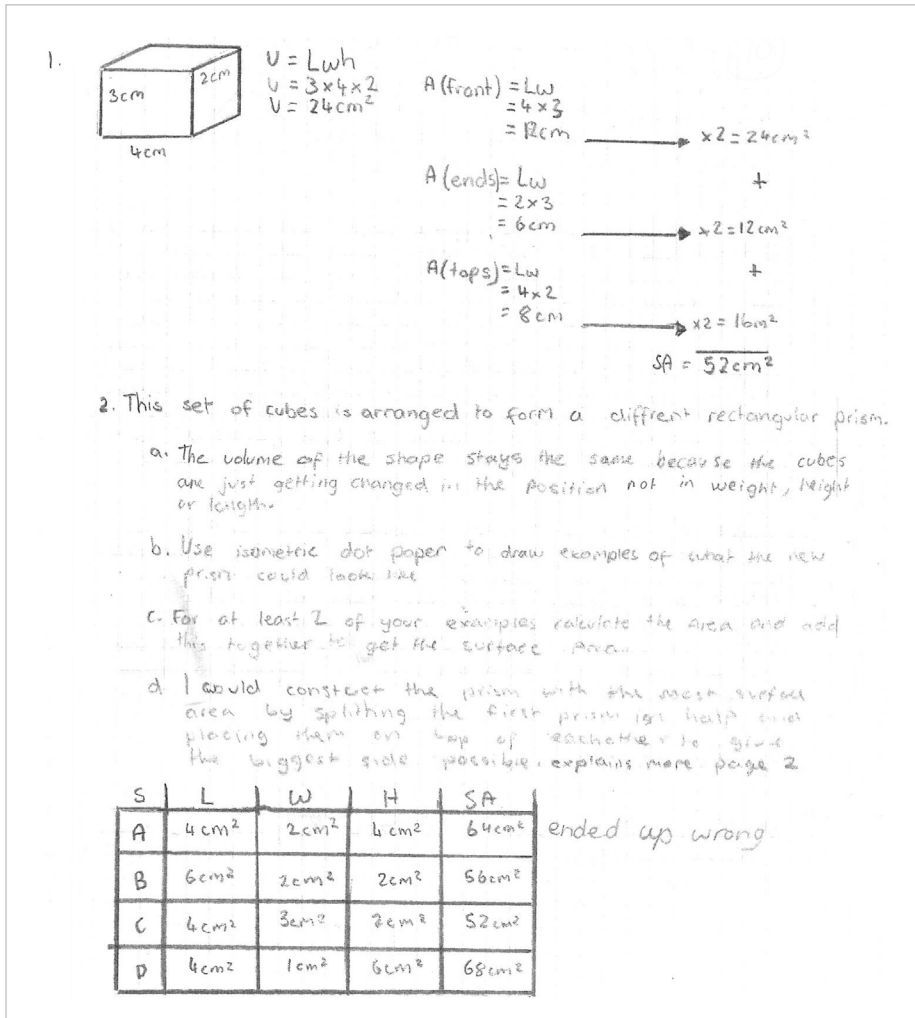 1.
3cm
2cm
4cm
V = Lwh
V = 3×4×2
V = 24cm²
A (front) = Lw
= 4 × 3
= 12cm
×2 = 24cm²
+
A (ends) = Lw
= 2×3
= 6cm
×2 = 12cm²
+
A(tops) = Lw
= 4×2
= 8cm
×2 = 16m²
SA = 52cm²
2. This set of cubes is arranged to form a diffrent rectangular prism.
a. The volume of the shape stays the same because the cubes
are just getting changed in the position not in weight, height
or length.
b. Use isometric dot paper to draw examples of what the new
prism could look like
c. For at least 2 of your examples calculate the area and add
this together to get the surface area.
d. I would constuct the prism with the most surface
area by splitting the first prism in half and
placing them on top of eachother to give
the biggest side possible. explains more page 2
S L W H SA
A 4cm² 2cm² 4cm² 64cm² ended up wrong
B 6cm² 2cm² 2cm² 56cm²
C 4cm² 3cm² 2cm² 52cm²
D 4cm² 1cm² 6cm² 68cm²